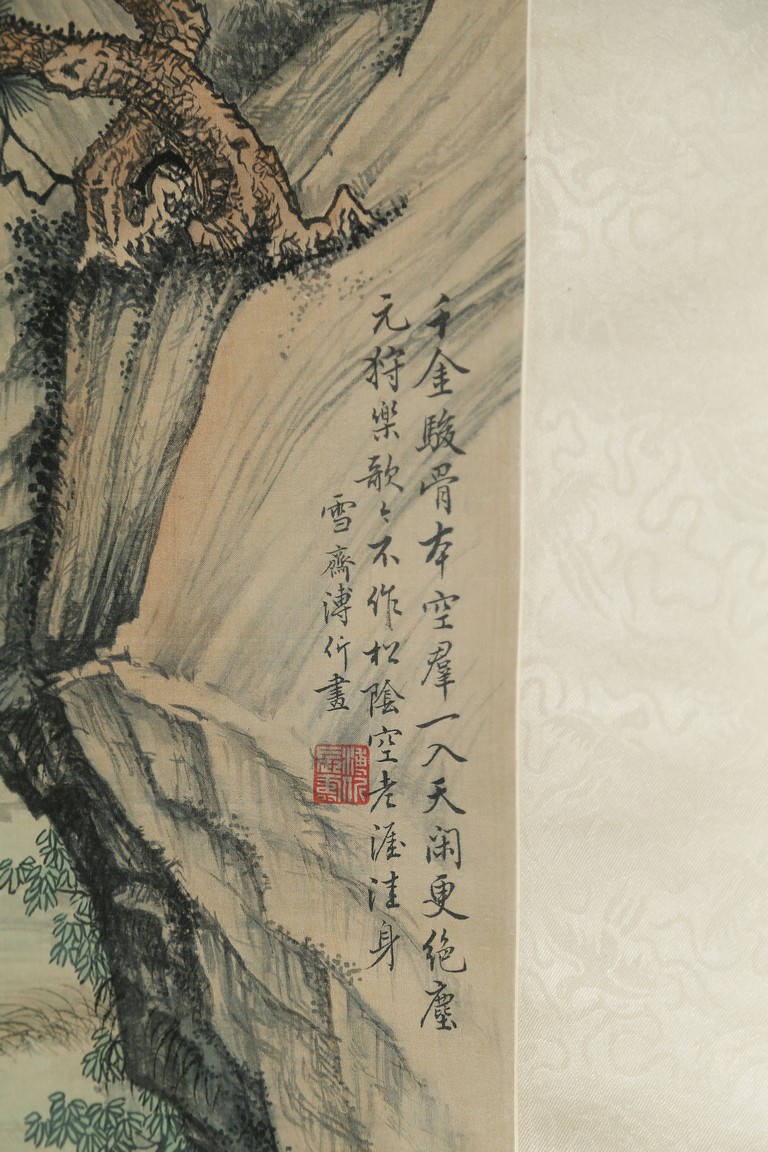 千金駿骨本空羣一入天闲更绝塵
元狩樂歌〻不作松陰空老渥洼身
雪齋溥伒畫